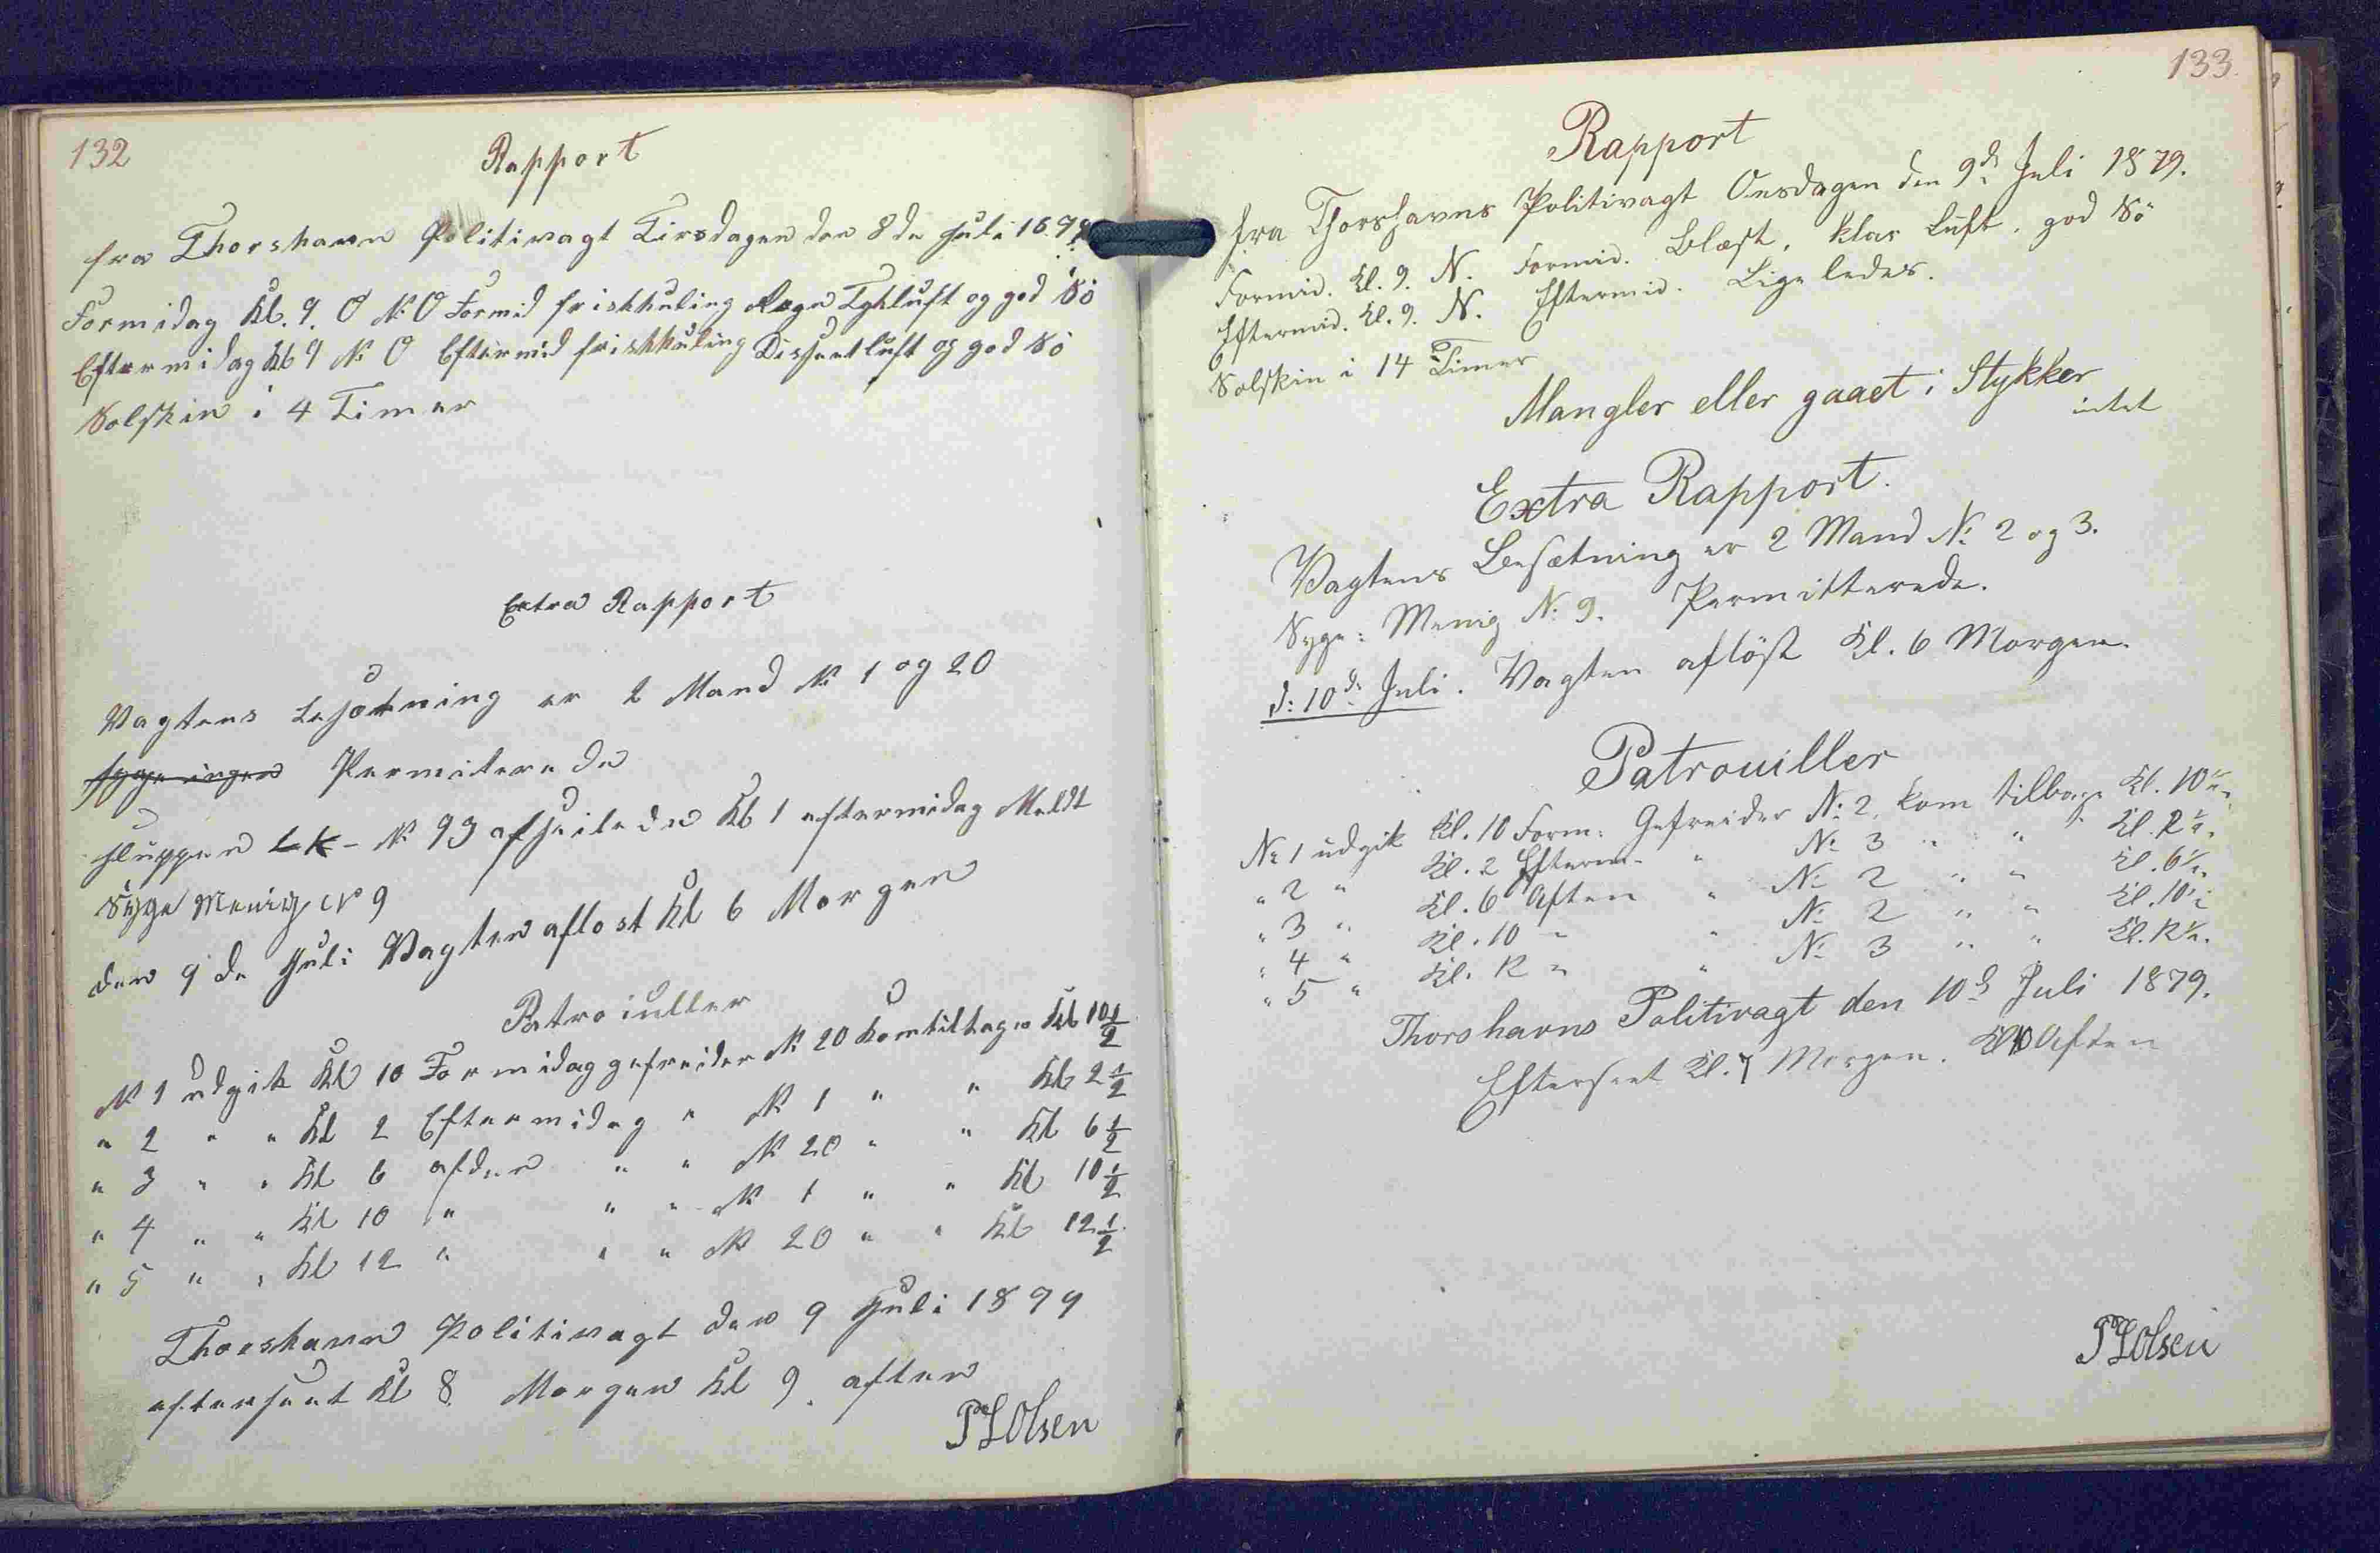 132
Rapport
fra Thorshavn Politivagt Tirsdagen den 8de Juli 1879
Formidag Kl. 9. O N. O Formid friskkuling Regn Tykluft og god Sö
Eftermidag Kl 9 N. O Eftermid friskkuling Dissetluft og god Sö
Solskin i 4 Timer
Extra Rapport
Vagtens besætning er 2 Mand N. 1 og 20
Syge ingen Permiterede
Sluppen LK - N. 93 afseilede Kl 1 eftermidag Meldt
Syge Menig N 9
den 9 de Juli Vagten aflost Kl 6 Morgen
Patrouiller
N. 1 udgik Kl 10 Formidag gefreider N. 20 komtilbage Kl 10 1/2
" 2 " " Kl 2 Eftermidag " N. 1 " " Kl 2 1/2
" 3 " " Kl 6 afden " " N. 20 " " Kl 6 1/2
" 4 " " Kl 10 " " " N. 1 " " Kl 10 1/2
" 5 " " Kl 12 " " " N. 20 " " Kl 12 1/2
Thorshavn Politivagt den 9 Juli 1879
efterseet Kl 8. Morgen Kl 9. aften
Olsen
133.
Rapport
fra Thorshavns Politivagt Onsdagen den 9de Juli 1879.
Formid. Kl. 9. N. Formid. Blæst, klar Luft, god Sö
Eftermid. Kl. 9. N. Eftermid. Ligeledes.
Solskin i 14 Timer
Mangler eller gaaet i Stykker
intet
Extra Rapport.
Vagtens Besætning er 2 Mand N: 2 og 3.
Syge: Menig N: 9. Permitterede.
d: 10de Juli. Vagten aflöst Kl. 6 Morgen.
Patrouiller
N: 1 udgik Kl. 10 Form: Gefreider N: 2, kom tilbage Kl. 10 1/2.
" 2 " Kl. 2 Efterm. " N: 3 " " Kl. 2 1/2.
" 3 " Kl. 6 Aften " N: 2 " " Kl. 6 1/2.
" 4 " Kl. 10 " " N: 2 " " Kl. 10 1/2
" 5 " Kl. 12 " " N: 3 " " Kl. 12 1/2.
Thorshavns Politivagt den 10de Juli 1879.
Efterseet Kl. 7 Morgen. Kl 10 Aften
Olsen